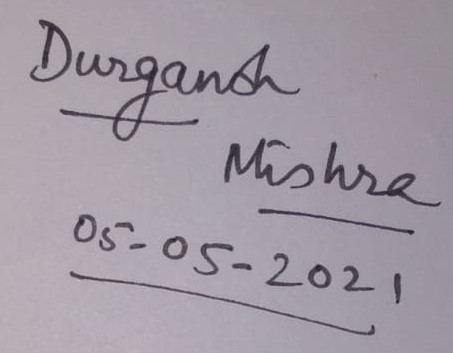 Durgansh
Mishra
05-05-2021